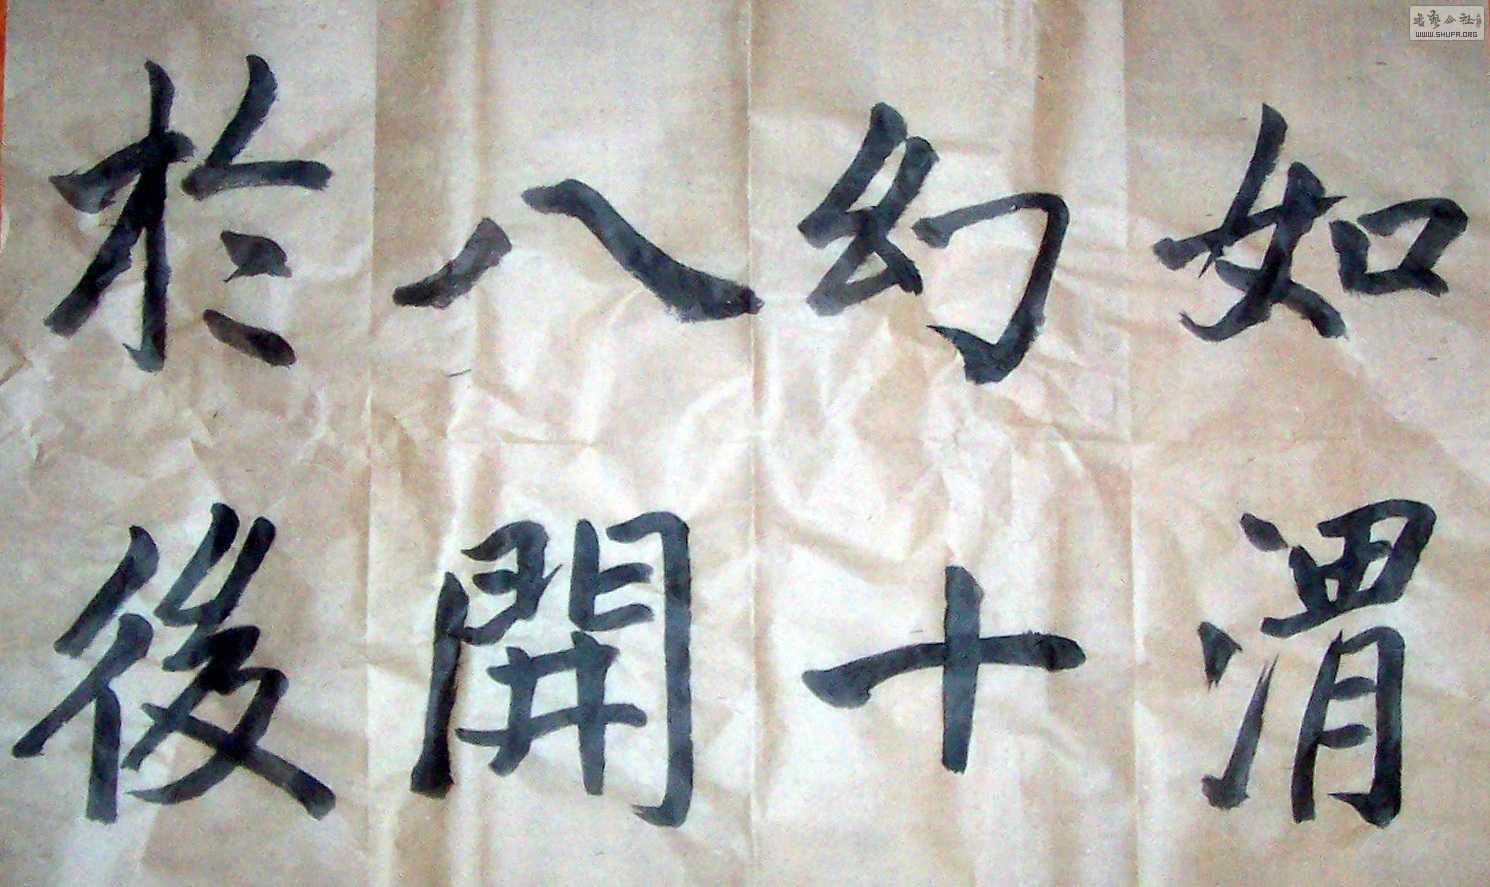 如渭
幻十
八開
於後
書藝公社
WWW.SHUFA.ORG